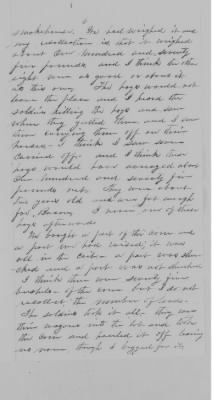 smokehouse. We had weighed it and
my recollection is that it weighed
about One hundred and seventy
five pounds and I think the other
eight were as good or about it
as this one. The hogs would not
leave the place and I heard the
soldiers killing the hogs and saw
when they gutted them and I saw
them carrying them off on their
horses. I think I saw seven
carried off. and I think these
hogs would have averaged about
One hundred and seventy five
pounds net. They were about
two years old and were fat enough
for bacon. I never saw of these
hogs afterwards
We bought a part of the corn and
a part we had raised; it was
all in the crib a part was shu-
cked and a part was not shucked
I think there were seventy five
bushels of the corn but I do not
recollect the number of loads.
The soldiers took it all. they run
their wagons into the lot and took
the corn and hauled it off leaving
us none though I begged for it.